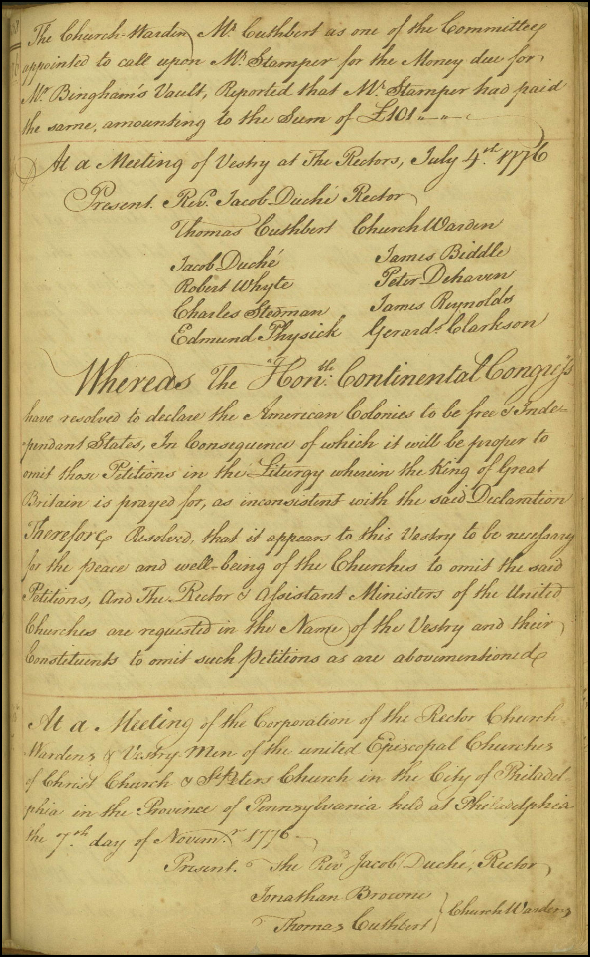 The Church-Warden Mr. Cuthbert as one of the Committee
appointed to call upon Mr. Stamper for the Money due for
Mr. Bingham's Vault, Reported that Mr. Stamper had paid
the same, amounting to the Sum of £101 " - " -
At a Meeting of Vestry at The Rectors, July 4th 1776
Present. Revd. Jacob Duché Rector
Thomas Cuthbert Church Warden
Jacob Duché James Biddle
Robert Whyte Peter Dehaven
Charles Stedman James Reynolds
Edmund Physick Gerards. Clarkson
Whereas The Honble. Continental Congress
have resolved to declare the American Colonies to be free & Inde-
pendant States, In Consequence of which it will be proper to
omit those Petitions in the Liturgy wherein the King of Great
Britain is prayed for, as inconsistent with the said Declaration
Therefore Resolved, that it appears to this Vestry to be necessary
for the peace and well-being of the Churches to omit the said
Petitions, And The Rector & Assistant Ministers of the United
Churches are requested in the Name of the Vestry and their
Constituents to omit such Petitions as are abovementioned
At a Meeting of the Corporation of the Rector Church
Wardens & Vestry Men of the united Episcopal Churches
of Christ Church & St. Peters Church in the City of Philadel-
phia in the Province of Pennsylvania held at Philadelphia
the 7th. day of Novemr. 1776
Present. The Revd. Jacob Duché, Rector
Jonathan Browne
Thomas Cuthbert } Church Wardens